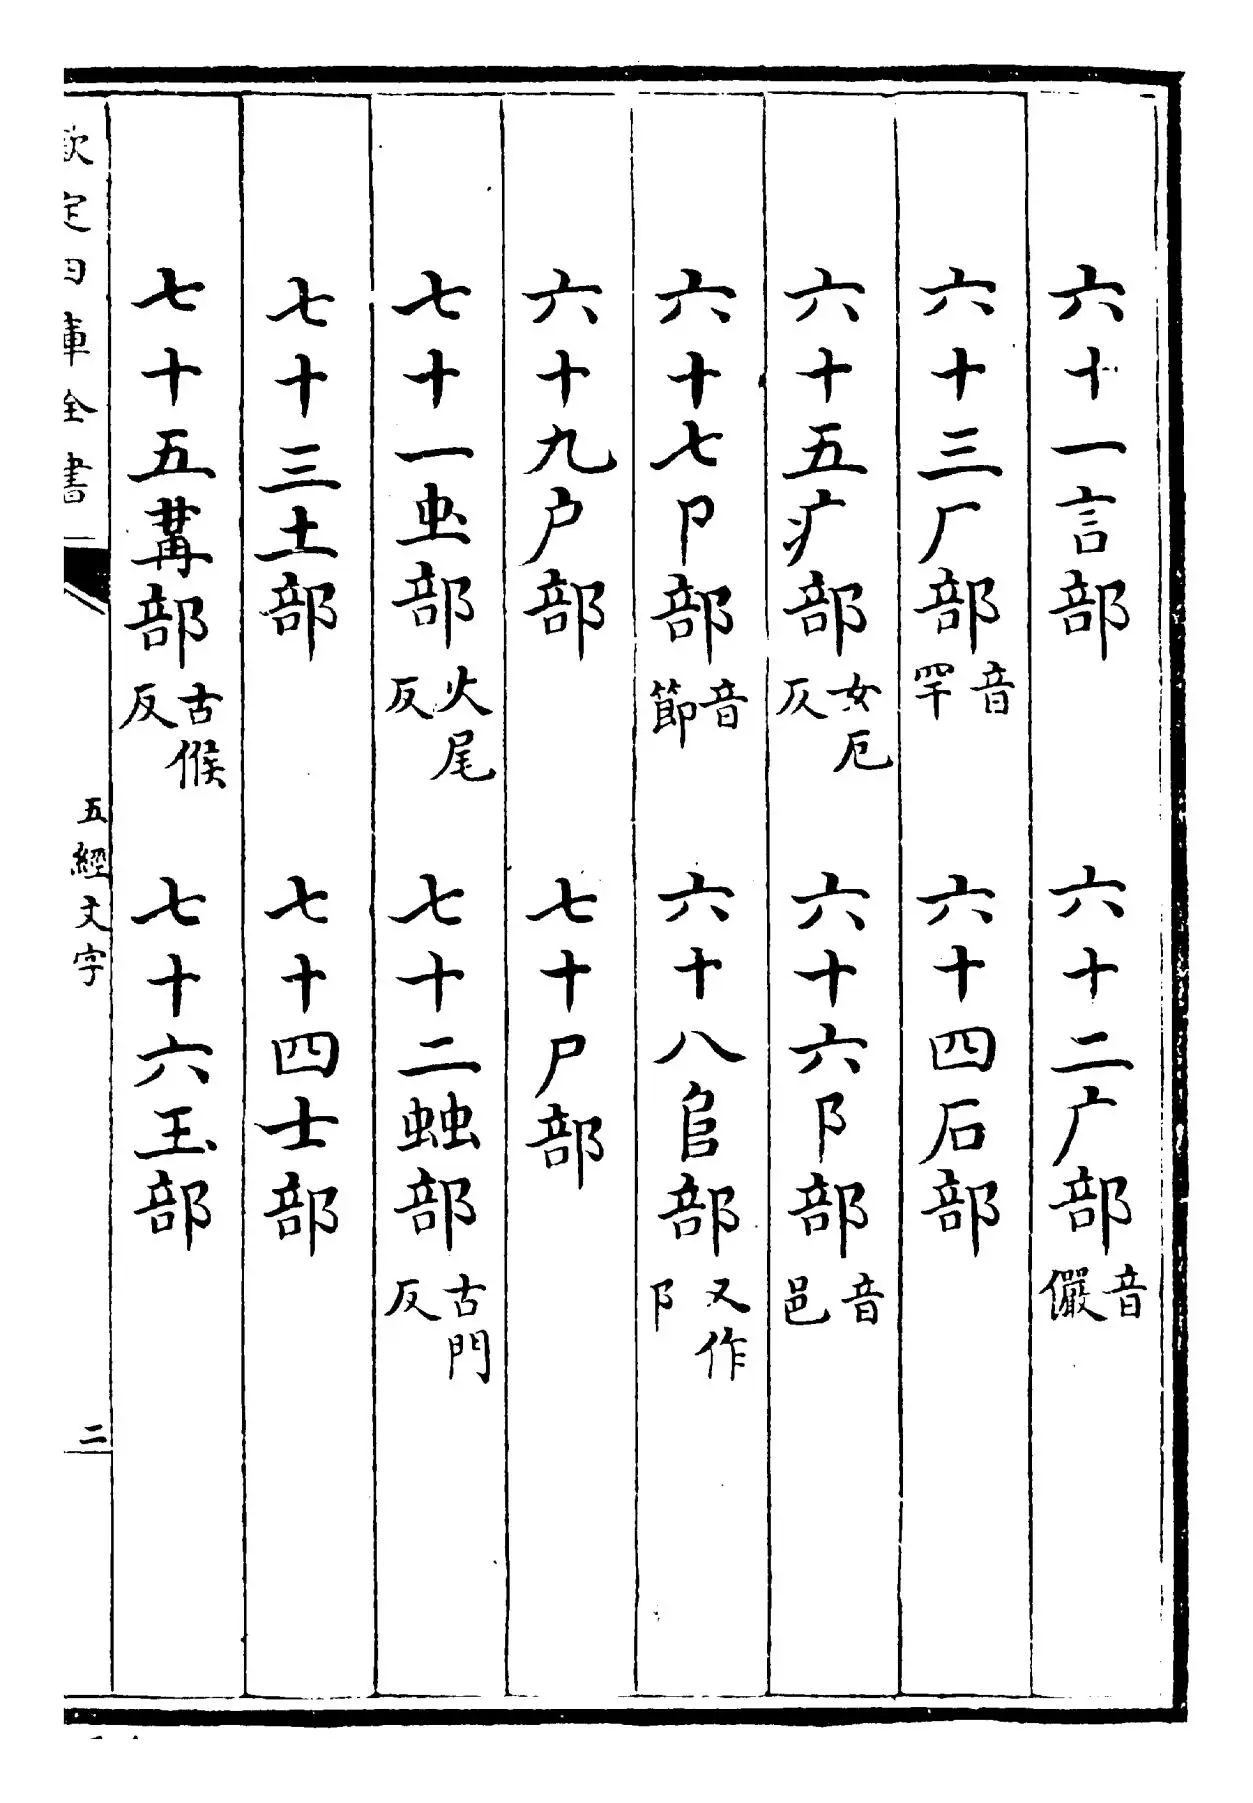 六十一言部　六十二广部音儼
六十三厂部音䍐　六十四石部
六十五疒部女厄反　六十六阝部音邑
六十七卩部音節　六十八𨸏部又作阝
六十九户部　七十尸部
七十一虫部火尾反　七十二䖵部古門反
七十三土部　七十四士部
七十五冓部古候反　七十六玉部
欽定四庫全書　五經文字　二